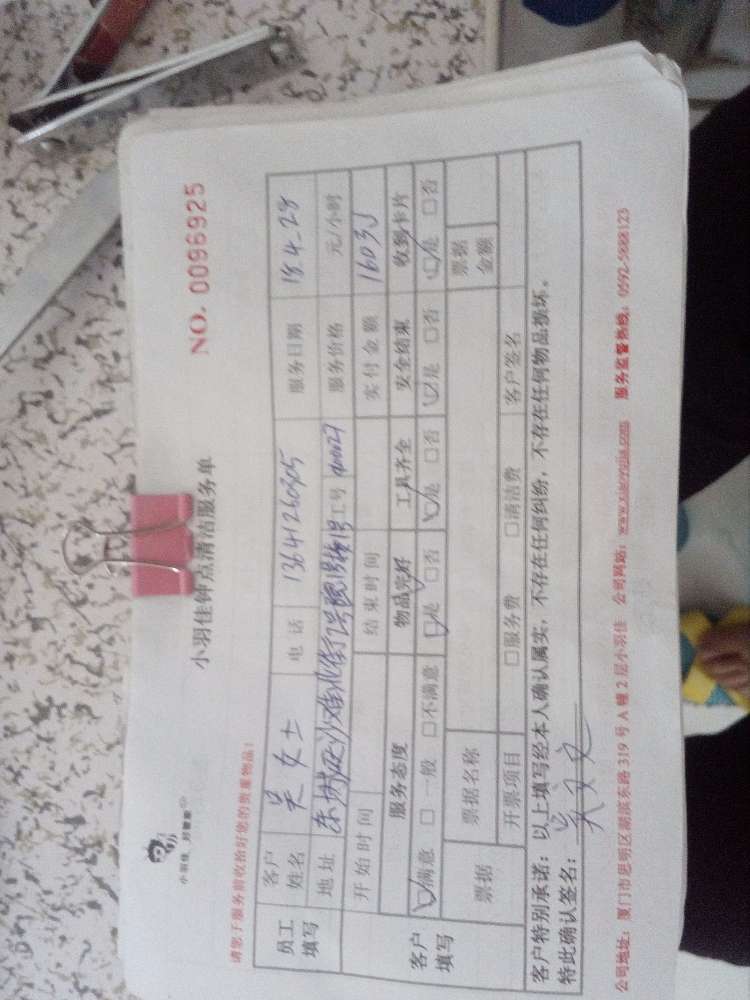 小羽佳钟点清洁服务单
NO. 0096925
请您于服务前收拾好您的贵重物品!
员工填写
客户姓名 吴女士 电话 服务日期 18.4.28
地址 工号 服务价格 元/小时
开始时间 结束时间 实付金额
客户填写
服务态度 物品完好 工具齐全 安全结束 收到卡片
☑满意 □一般 □不满意 ☑是 □否 ☑是 □否 ☑是 □否 ☑是 □否
票据 票据名称 票据金额
开票项目 □服务费 □清洁费 客户签名
客户特别承诺:以上填写经本人确认属实,不存在任何纠纷,不存在任何物品损坏。
特此确认签名:
公司地址:厦门市思明区湖滨东路 319 号 A 幢 2 层小羽佳 公司网站:www.xiaoyujia.com 服务监督热线:0592-5888123